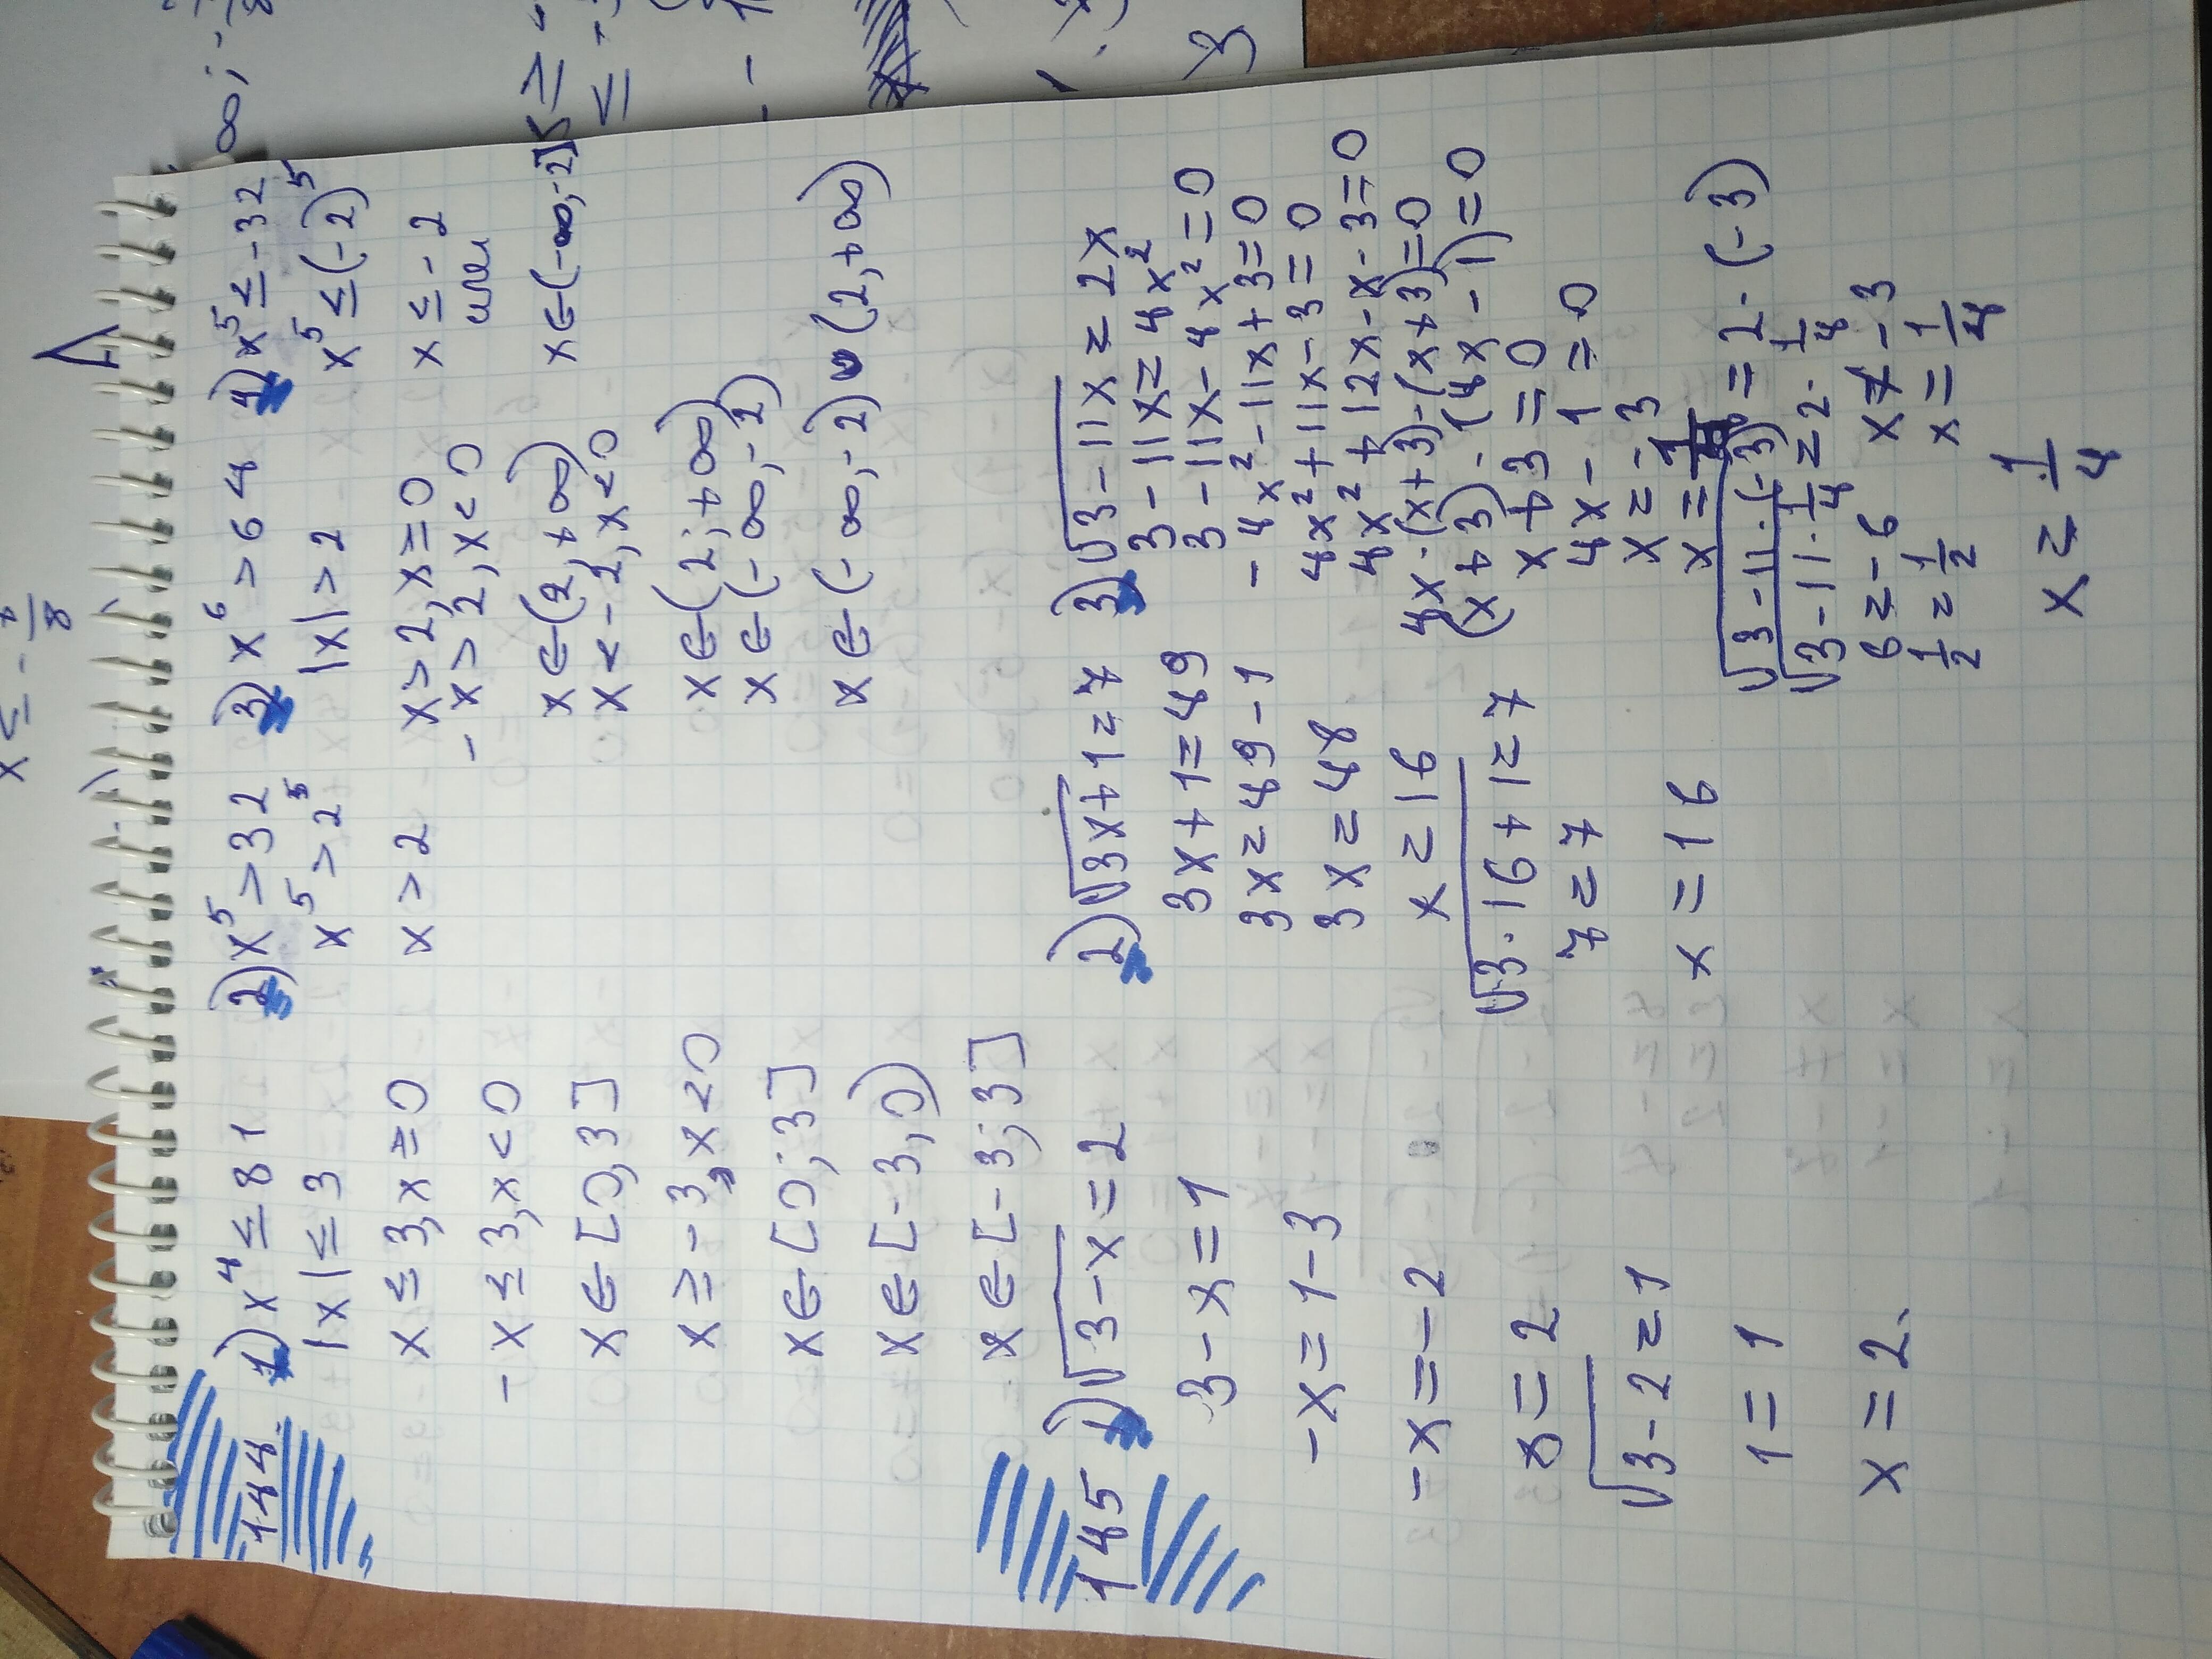 144.
1) x⁴ ≤ 81
|x| ≤ 3
x ≤ 3, x ≥ 0
-x ≤ 3, x < 0
x ∈ [0, 3]
x ≥ -3, x < 0
x ∈ [0; 3]
x ∈ [-3, 0)
x ∈ [-3; 3]
2) x⁵ > 32
x⁵ > 2⁵
x > 2
3) x⁶ > 64
|x| > 2
x > 2, x ≥ 0
-x > 2, x < 0
x ∈ (2, +∞)
x < -2, x < 0
x ∈ (2; +∞)
x ∈ (-∞, -2)
x ∈ (-∞, -2) ∪ (2, +∞)
4) x⁵ ≤ -32
x⁵ ≤ (-2)⁵
x ≤ -2
или
x ∈ (-∞, -2]
145
1) √3-x = 2
3 - x = 1
-x = 1 - 3
-x = -2
x = 2
√3-2 = 1
1 = 1
x = 2.
2) √3x+1 = 7
3x + 1 = 49
3x = 49 - 1
3x = 48
x = 16
√3·16+1 = 7
7 = 7
x = 16
3) √3-11x = 2x
3 - 11x = 4x²
3 - 11x - 4x² = 0
-4x² - 11x + 3 = 0
4x² + 11x - 3 = 0
4x² + 12x - x - 3 = 0
4x·(x+3) - (x+3) = 0
(x+3)·(4x-1) = 0
x + 3 = 0
4x - 1 = 0
x = -3
x = 1/4
√3-11·(-3) = 2·(-3)
√3-11·1/4 = 2·1/4
6 = -6 x ≠ -3
1/2 = 1/2 x = 1/4
x = 1/4